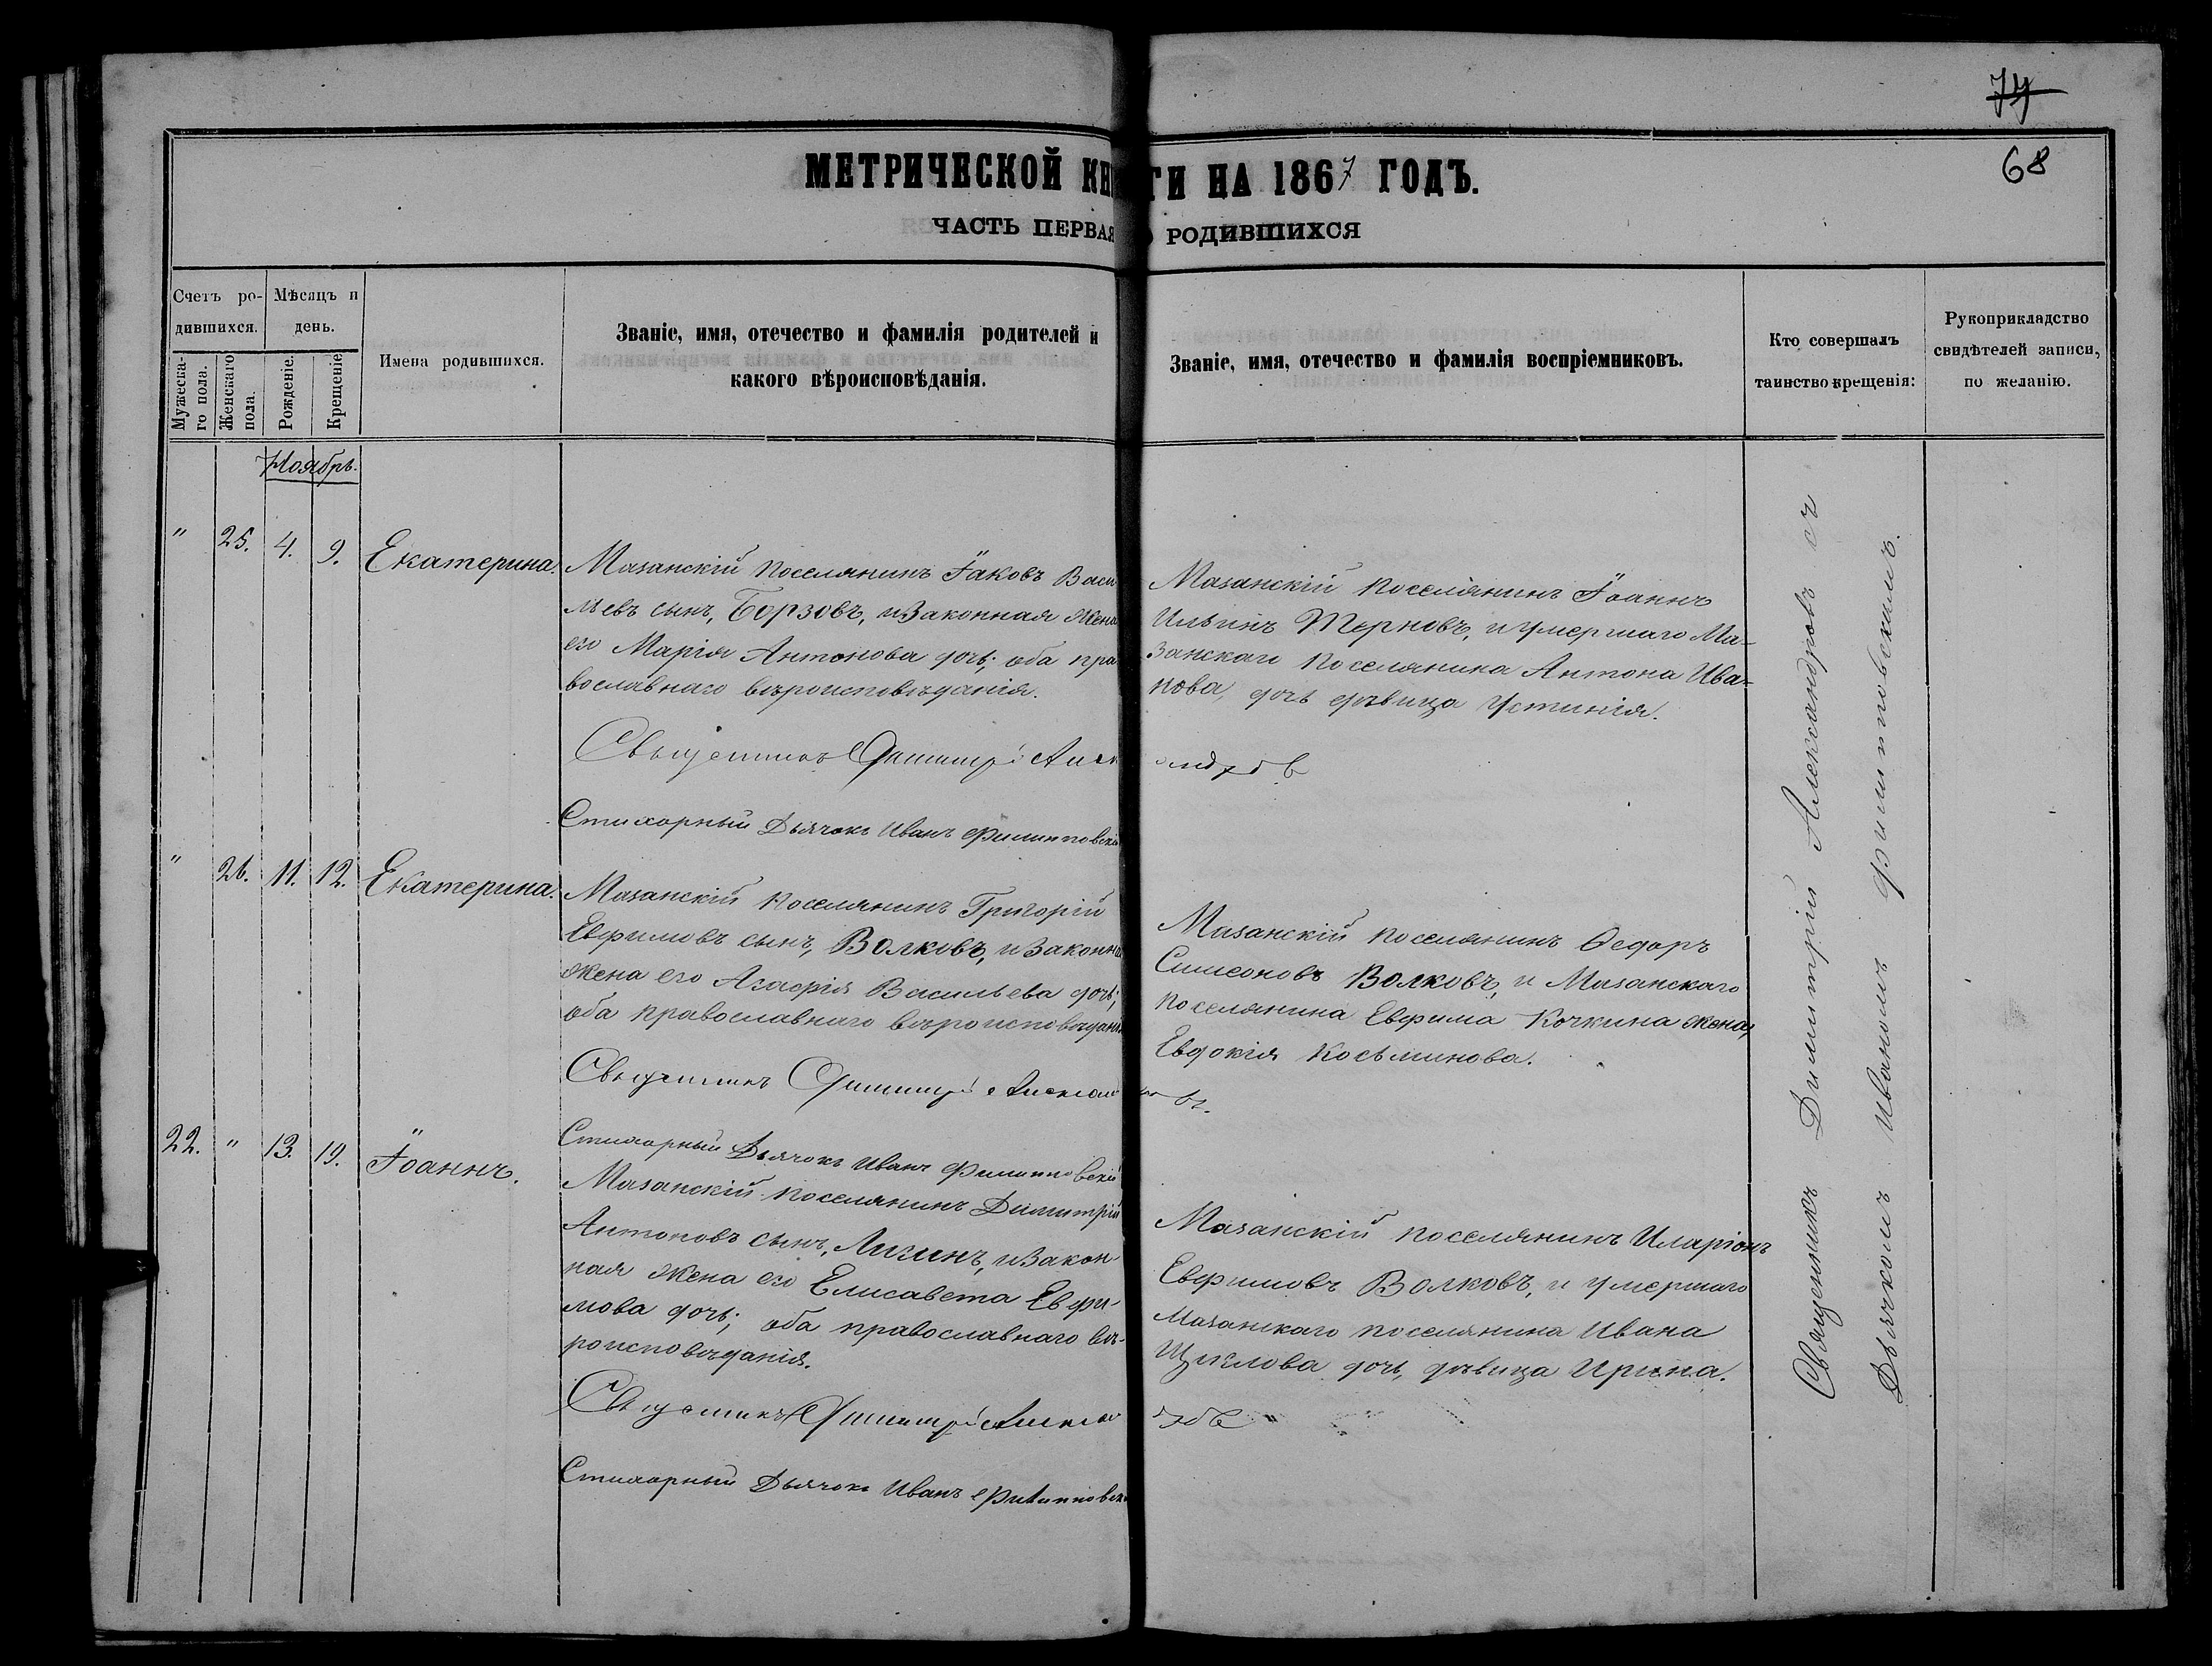 74
68
МЕТРИЧЕСКОЙ КНИГИ НА 1867 ГОДЪ.
ЧАСТЬ ПЕРВАЯ О РОДИВШИХСЯ
Счетъ ро-
дившихся.
Мужеска-
го пола.
Женскаго
пола.
Мѣсяцъ и
день.
Рожденіе.
Крещеніе.
Имена родившихся.
Званіе, имя, отечество и фамилія родителей и
какого вѣроисповѣданія.
Званіе, имя, отечество и фамилія воспріемниковъ.
Кто совершалъ
таинство крещенія:
Рукоприкладство
свидѣтелей записи,
по желанію.
Ноябрь.
" 25. 4. 9. Екатерина.
Мазанскій поселянинъ Іаковъ Васи
льевъ сынъ, Борзовъ, и законная жена
его Марія Антонова дочь; оба пра
вославнаго вѣроисповѣданія.
Мазанскій поселянинъ Іоаннъ
Ильинъ Терновъ, и умершаго Ма-
занскаго поселянина Антона Ива-
нова, дочь дѣвица Устинія.
Священникъ Димитрій Александровъ
Стихарный Дьячокъ Иванъ Филипповскій
" 26. 11. 12. Екатерина.
Мазанскій поселянинъ Григорій
Евфимовъ сынъ, Волковъ, и законна
жена его Агафія Васильева дочь;
оба православнаго вѣроисповѣдані
Мазанскій поселянинъ Ѳедоръ
Симеоновъ Волковъ, и Мазанскаго
поселянина Евфима Кочкина жена,
Евдокія Косьминова.
Священникъ Димитрій Александровъ.
Стихарный Дьячокъ Иванъ Филипповскій
22. " 13. 19. Іоаннъ.
Мазанскій поселянинъ Димитрій
Антоновъ сынъ, Лизинъ, и закон-
ная жена его Елисавета Евфи-
мова дочь; оба православнаго вѣ-
роисповѣданія.
Мазанскій поселянинъ Иларіонъ
Евфимовъ Волковъ, и умершаго
Мазанскаго поселянина Ивана
Щеглова дочь, дѣвица Ирина.
Священникъ Димитрій Александровъ
Стихарный Дьячокъ Иванъ Филипповск
Священникъ Димитрій Александровъ съ
Дьячкомъ Иваномъ Филипповскимъ.